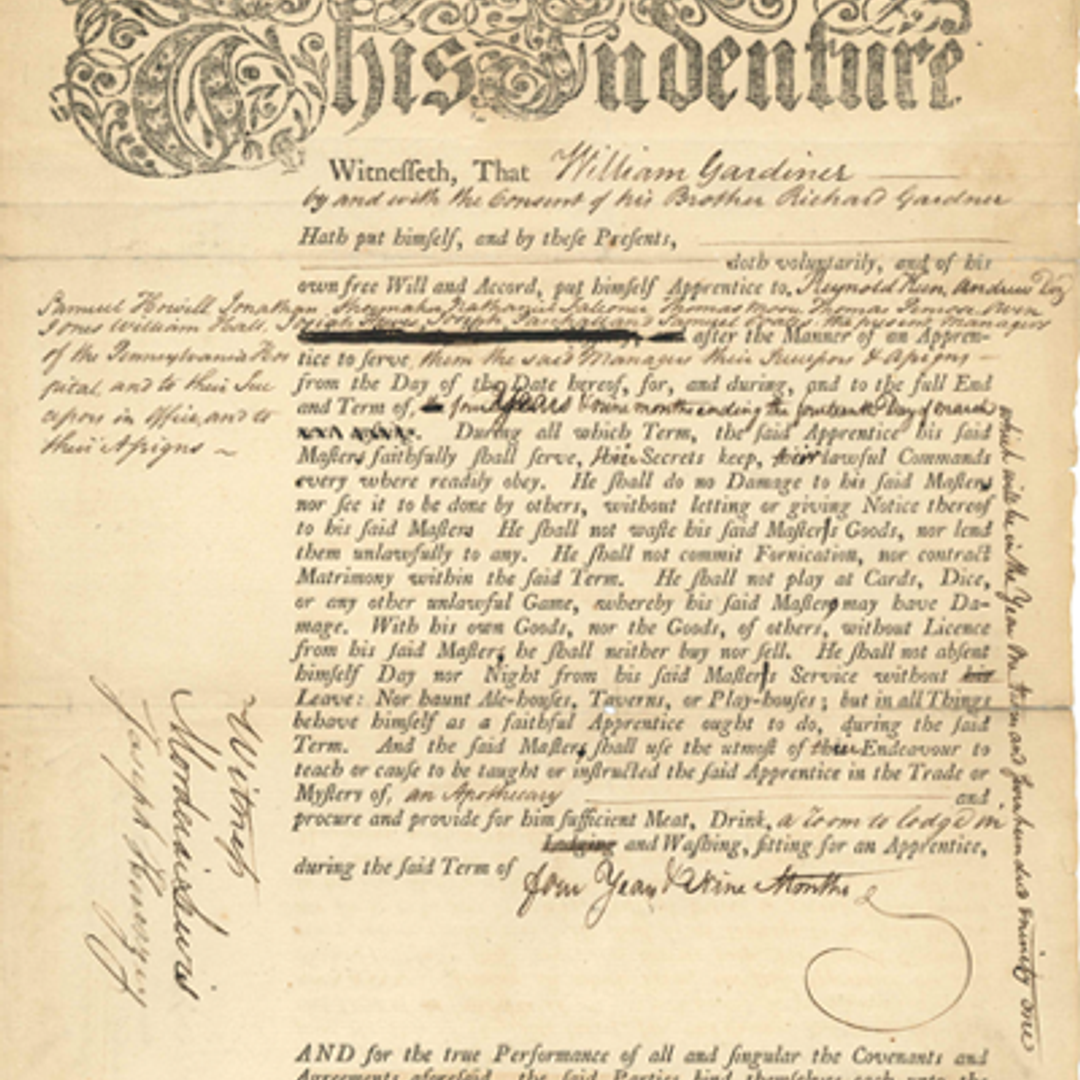 This Indenture
Witnesseth, That William Gardiner
by and with the Consent of his Brother Richard Gardner
Hath put himself, and by these Presents,
doth voluntarily, and of his
own free Will and Accord, put himself Apprentice to, Reynold Keen, Andrew Doz
Samuel Howell Jonathan Shoemaker Nathaniel Falconer Thomas Moore Thomas Penrose Owen
Jones William Hall, the present Managers
of the Pennsylvania Hos
pital, and to their Suc
cessors in Office, and to
their Assigns
after the Manner of an Appren-
tice to serve, them the said Managers their Successors & Assigns
from the Day of the Date hereof, for, and during, and to the full End
and Term of, four Years & nine months ending the fourteenth Day of March
which will be in the Year one thousand seven hundred & ninety one
During all which Term, the said Apprentice his said
Masters faithfully shall serve, their Secrets keep, their lawful Commands
every where readily obey. He shall do no Damage to his said Masters
nor see it to be done by others, without letting or giving Notice thereof
to his said Masters He shall not waste his said Masters Goods, nor lend
them unlawfully to any. He shall not commit Fornication, nor contract
Matrimony within the said Term. He shall not play at Cards, Dice,
or any other unlawful Game, whereby his said Masters may have Da-
mage. With his own Goods, nor the Goods, of others, without Licence
from his said Masters he shall neither buy nor sell. He shall not absent
himself Day nor Night from his said Masters Service without his
Leave: Nor haunt Ale-houses, Taverns, or Play-houses; but in all Things
behave himself as a faithful Apprentice ought to do, during the said
Term. And the said Masters shall use the utmost of their Endeavour to
teach or cause to be taught or instructed the said Apprentice in the Trade or
Mystery of, an Apothecary and
procure and provide for him sufficient Meat, Drink, a room to lodge in
Lodging and Washing, fitting for an Apprentice,
during the said Term of four Years & Nine Months
Witness
Mordecai Lewis
Joseph
AND for the true Performance of all and singular the Covenants and
Agreements aforesaid, the said Parties bind themselves each unto the